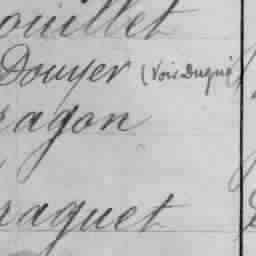 ouillet
Douyer (Voir Duqué)
ragon
raguet